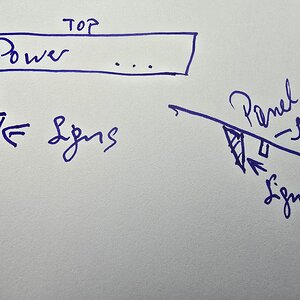 TOP
Power ...
Signs
Panel
Sign